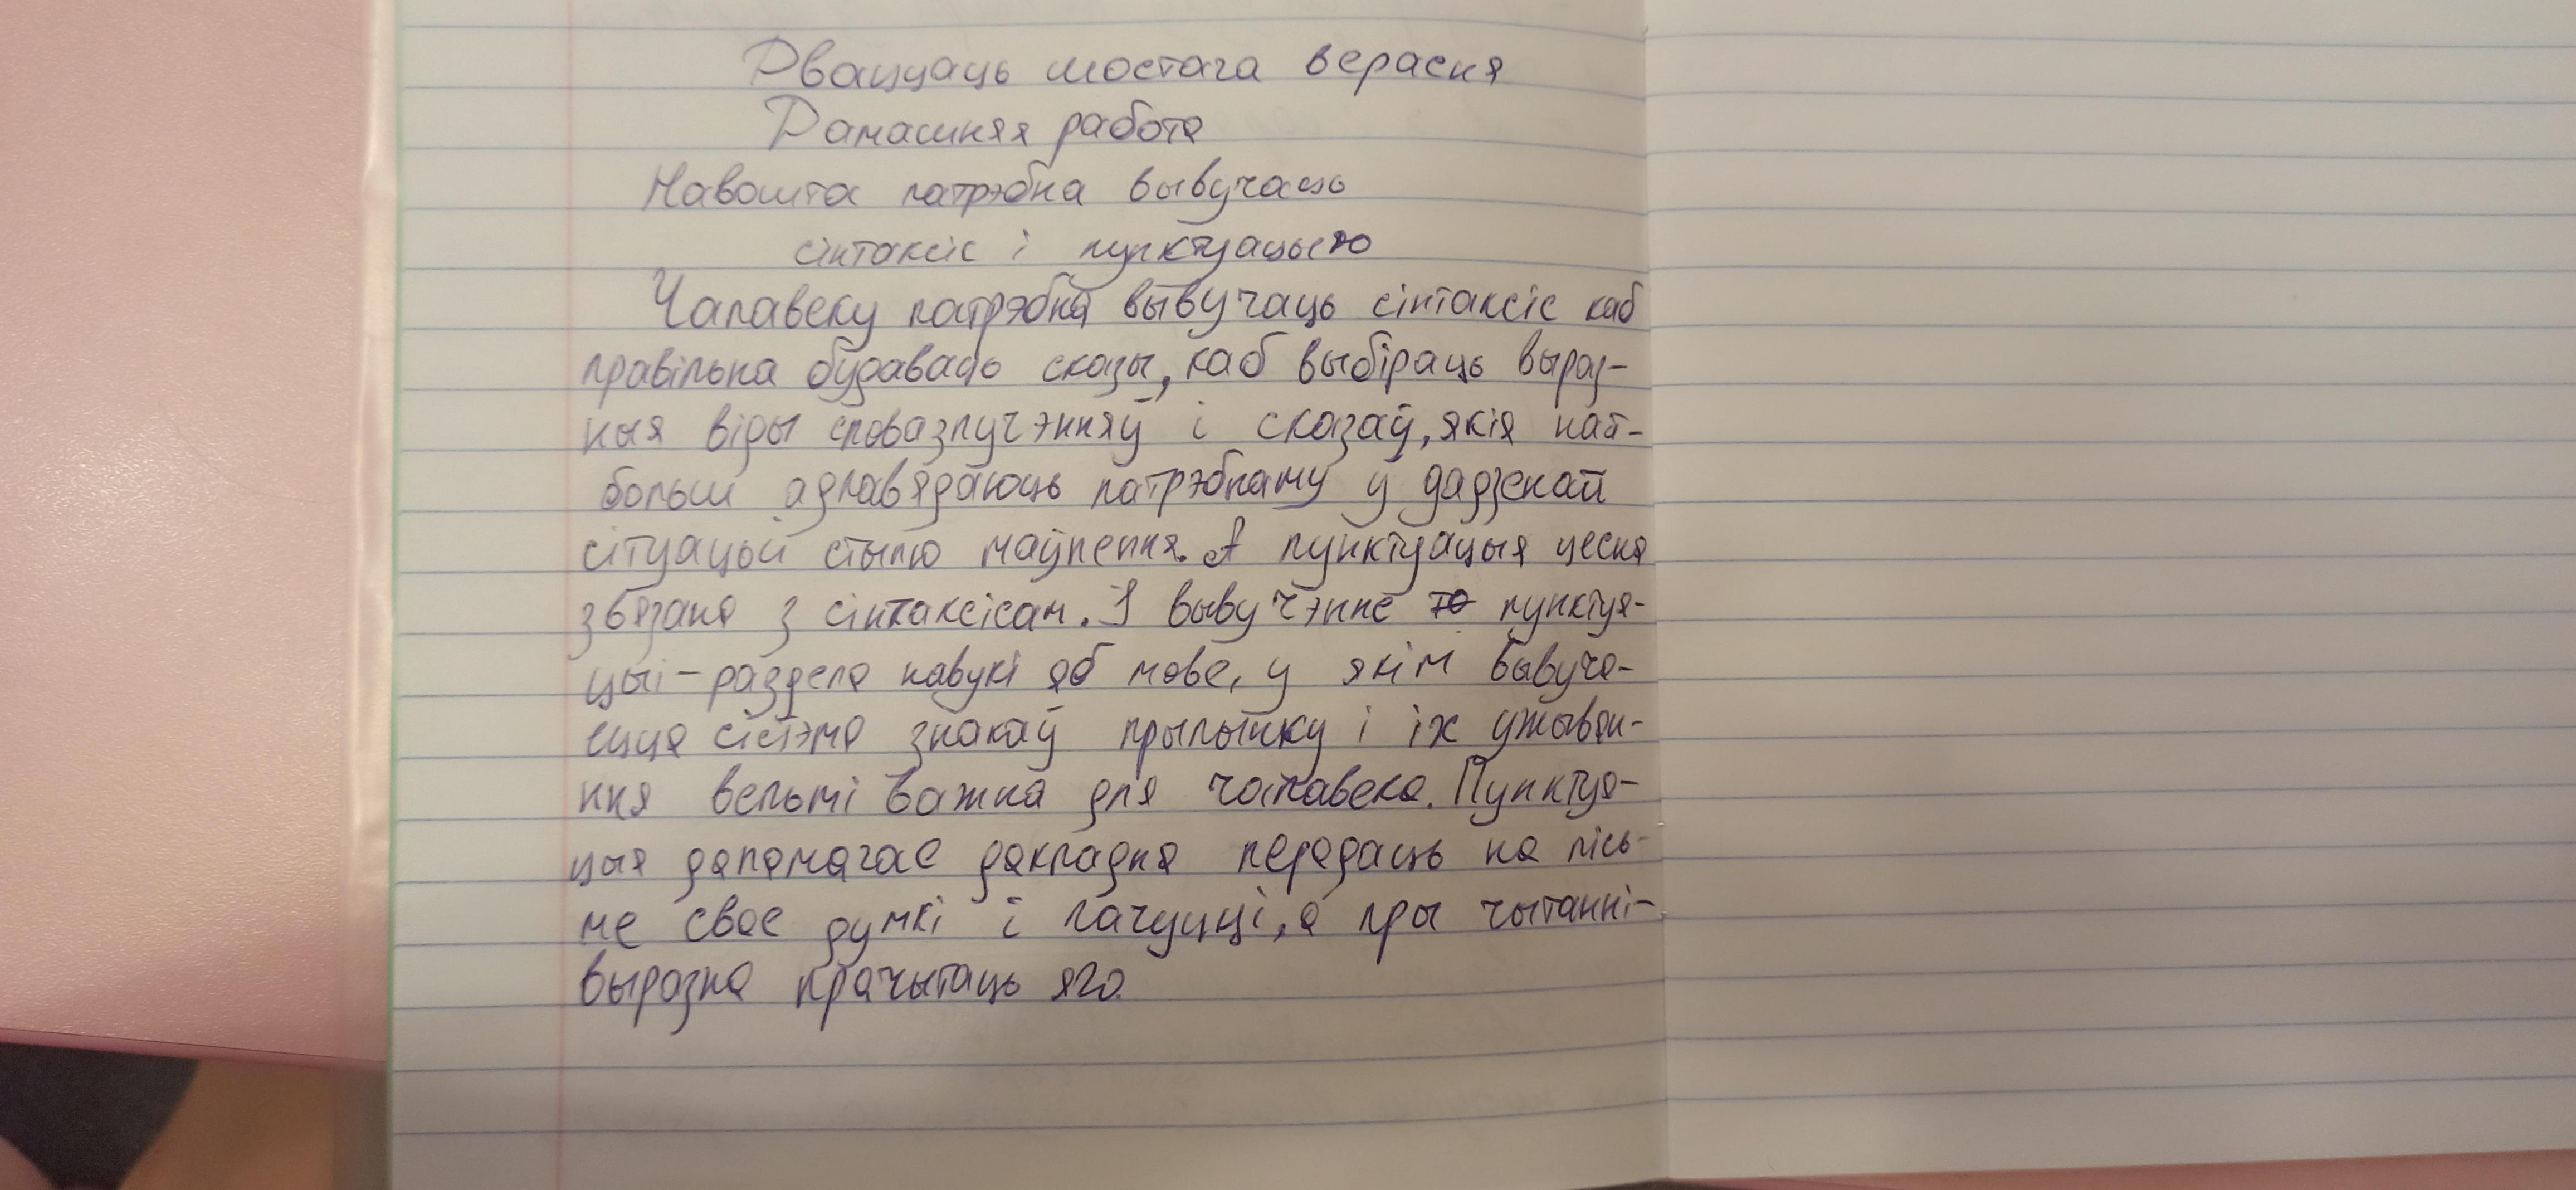 Дваццаць шостага верасня
Дамашняя работа
Навошта патрэбна вывучаць
сінтаксіс і пунктуацыю
Чалавеку патрэбна вывучаць сінтаксіс каб
правільна будаваць сказы, каб выбіраць выраз-
ныя віды словазлучэнняў і сказаў, якія най-
больш адпавядаюць патрэбнаму ў дадзенай
сітуацыі стылю маўлення. А пунктуацыя цесна
звязана з сінтаксісам. І вывучэнне пунктуа-
цыі - раздела навукі аб мове, у якім вывуча-
ецца сістэма знакаў прыпынку і іх ужыван-
ння вельмі важна для чалавека. Пунктуа-
цыя дапамагае дакладна перадаць на пісь-
ме свае думкі і пачуцці, а пры чытанні-
выразна прачытаць яго.